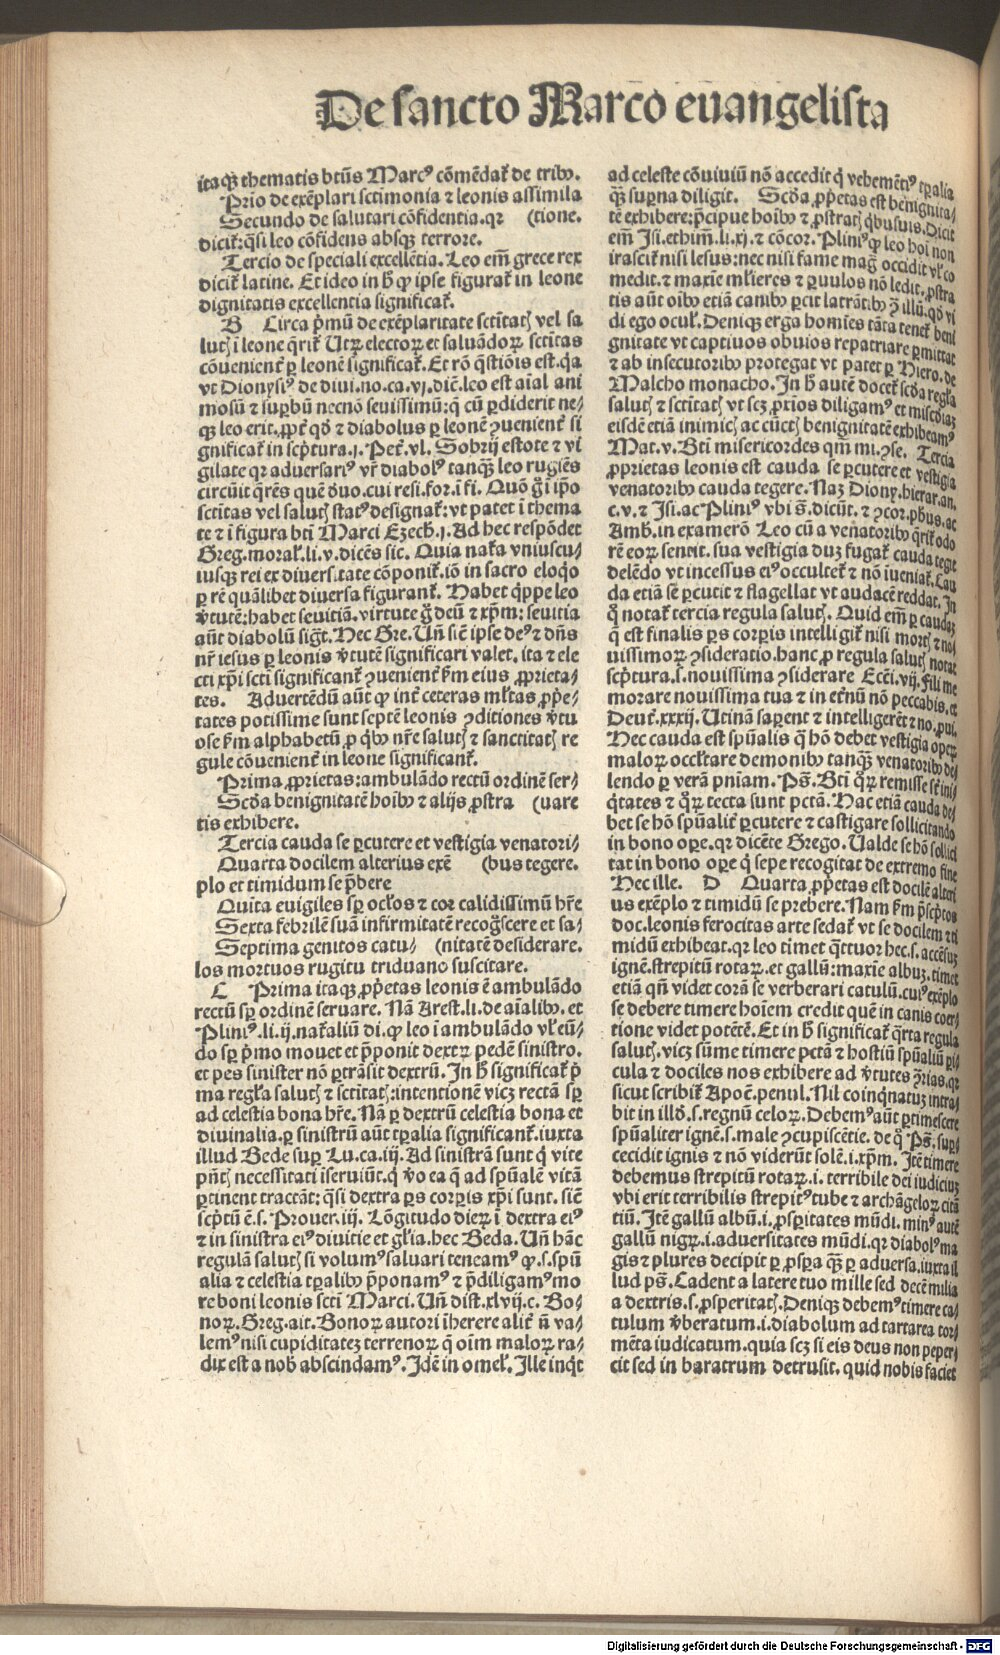 De sancto Marco euãngelista
itaqꝫ thematis btũs Marcꝰ cõmẽdat̉ de tribꝫ.
Prio de exẽplari sctimonia ⁊ leonis assimila
Secundo de salutari cõfidentia.qꝛ (tione.
dicit̉: qĩsi leo cõfidens absqꝫ terrore.
Tercio de speciali excellẽtia. Leo em̃ grece rex
dicit̉ latine. Et ideo in h̊ ꝙ ipse figurat̉ in leone
dignitatis excellentia significat̉.
B Circa p̃mũ de exẽplaritate sctĩtatꝭ vel sa
lutꝭ ĩ leone q̃rit̉ Utrꝫ electoꝝ et saluãdoꝝ sctĩtas
cõuenient̉ ꝑ leonẽ significat̉. Et rõ q̃stiõis est.q̃a
vt Dionysiꝰ de diui.no.ca.vj.diẽ.leo est aĩal ani
mosũ ⁊ suꝑbũ necnõ seuissimũ:q̃ cũ ꝑdiderit ne⸗
qꝫ leo erit.ꝓpt̉ qd̊ ⁊ diabolus ꝑ leonẽ ꝯuenient̉ si
gnificat̉ in scp̃tura.j.Pet̉.vl. Sobrij estote ⁊ vi
gilate qꝛ aduersariꝰ vr̃ diabolꝰ tanqꝫ leo rugiẽs
circũit q̃rẽs quẽ d̊uo.cui resi.for.ĩ fi. Quõ g̊ ĩ ip̃o
sctĩtas vel salutꝭ statꝰ designat̉:vt patet ĩ thema
te ⁊ ĩ figura btĩ Marci Ezech.j. Ad hec respõdet
Greg.moral̉.li.v.dicẽs sic. Quia nat̉a vniuscu⸗
iusqꝫ rei ex diuersitate cõponit̉.iõ in sacro eloq̊o
ꝑ rẽ quãlibet diuersa figurant̉. Habet q̃ppe leo
v̉tutẽ:habet seuitiã.virtute g̊ deũ ⁊ xp̃m: seuitia
aũt diabolũ sig̃t. Hec Gre. Uñ siẽ ipse deꝰ ⁊ dñs
nr̃ iesus ꝑ leonis v̉tutẽ significari valet.ita ⁊ ele
cti xp̃i sctĩ significant̉ ꝯuenient̉ ẜm eius ꝓprieta⸗
tes. Aduertẽdũ aũt ꝙ int̉ ceteras ml̉tas ꝓp̃e⸗
tates potissime sunt septẽ leonis ꝯditiones v̉tu
ose ẜm alphabetũ ꝓ q̃bꝫ nr̃e salutꝭ ⁊ sanctitatꝭ re
gule cõuenient̉ in leone significant̉.
Prima ꝓprietas:ambulãdo rectũ ordinẽ ser⸗
Scd̊a benignitatẽ hoĩbꝫ ⁊ alijs ꝓstra (uare
tis exhibere.
Tercia cauda se ꝑcutere et vestigia venatori⸗
Quarta docilem alterius exẽ (bus tegere.
plo et timidum se p̃bere
Quĩta euigiles sꝑ ocl̉os ⁊ cor calidissimũ hr̃e
Sexta febrilẽ suã infirmitatẽ recog̊scere et sa⸗
Septima genitos catu⸗ (nitatẽ desiderare.
los mortuos rugitu triduano suscitare.
C Prima itaqꝫ ꝓp̃etas leonis ẽ ambulãdo
rectũ sꝑ ordinẽ seruare. Nã Arest.li.de aĩalibꝫ.et
Pliniꝰ.li.ij.nat̉aliũ di.ꝙ leo ĩ ambulãdo vl̉ eũ⸗
do sꝑ p̃mo mouet et p̃ponit dextrꝫ pedẽ sinistro.
et pes sinister nõ ꝑtrãsit dextrũ. In h̊ significat̉ p̃
ma regl̉a salutꝭ ⁊ sctĩtatꝭ:intentionẽ vicꝫ rectã sꝑ
ad celestia bona hr̃e. Nã ꝑ dextrũ celestia bona et
diuinalia.ꝑ sinistrũ aũt tꝑalia significant̉.iuxta
illud Bede suꝑ Lu.ca.iij. Ad sinistrã sunt q̃ vite
pñtꝭ necessitati ĩseruiũt.q̃ v̊o ea q̃ ad spũalẽ vitã
ꝑtinent tractãt: q̃si dextra ꝑs corꝑis xp̃i sunt. siẽ
scp̃tũ ẽ.s. Prouer.iij. Lõgitudo dieꝝ ĩ dextra eiꝰ
⁊ in sinistra eiꝰ diuitie et gl̉ia.hec Beda. Uñ hãc
regulã salutꝭ si volumꝰ saluari teneamꝰ ꝙ.s.spũ
alia ⁊ celestia tꝑalibꝫ p̃ponamꝰ ⁊ p̃diligamꝰ mo
re boni leonis sctĩ Marci. Uñ dist.xlvij.c. Bo⸗
noꝝ. Greg.ait. Bonoꝝ autori ĩherere alit̉ ñ va⸗
lemꝰ nisi cupiditatez terrenoꝝ q̃ oĩm maloꝝ ra⸗
dix est a nob̉ abscindamꝰ. Idẽ in omel̉. Ille inq̃t
ad celeste cõuiuiũ nõ accedit q̃ vehemẽtiꝰ tꝑalia
qꝫ suꝑna diligit. Scd̊a ꝓp̃etas est benignita⸗
tẽ exhibere:p̃cipue hoĩbꝫ ⁊ ꝓstratꝭ q̃busuis. Dicit
em̃ Isi.ethim̃.li.xj.⁊ cõcor. Pliniꝰ ꝙ leo hoĩ non
irascit̉ nisi lesus:nec nisi fame mag̃ occidit vl̉ co
medit.⁊ maxie ml̉ieres ⁊ ꝑuulos nõ ledit.ꝓstra
tis aũt oĩbꝫ etiã canibꝫ ꝑcit latrãtibꝫ ꝯ̃ illũ.qd̊ vi
di ego ocul̉. Deniqꝫ erga homĩes tãta tenet̉ beni
gnitate vt captiuos obuios repatriare ꝑmittat
⁊ ab insecutoribꝫ protegat vt patet ꝑ Hiero.de
Malcho monacho. In h̊ autẽ docet̉ scd̊a regl̉a
salutꝭ ⁊ sctĩtatꝭ vt scꝫ ꝓxĩos diligamꝰ et miscd̊ias
eisdẽ etiã inimicꝭ ac cũctꝭ benignitatẽ exhibeamꝰ
Mat.v. Btĩ misericordes qm̃ mi.ꝯse. Tercia
ꝓprietas leonis est cauda se ꝑcutere et vestigia
venatoribꝫ cauda tegere. Naꝫ Diony.hierar.an.
c.v.⁊ Isi.ac Pliniꝰ vbi s̃.dicũt.⁊ ꝯcor.phus.ac
Amb̉.in examerõ Leo cũ a venatoribꝫ q̃rit̉ odo
rẽ eoꝝ sentit.sua vestigia duꝫ fugat̉ cauda tegit
delẽdo vt incessus eiꝰ occultet̉ ⁊ nõ iueniat̉. Cau
da etiã se ꝑcutit ⁊ flagellat vt audacẽ reddat. In
q̊ notat̉ tercia regula salutꝭ. Quid em̃ ꝑ caudaꝫ
q̃ est finalis ꝑs corꝑis intelligit̉ nisi mortꝭ ⁊ no
uissimoꝝ ꝯsideratio.hanc ꝓ regula salutꝭ notat
scp̃tura.s.nouissima ꝯsiderare Ecci.vij. Fili me
morare nouissima tua ⁊ in et̉nũ nõ peccabis.et
Deut̉.xxxij. Utinã saꝑent ⁊ intelligerẽt ⁊ no.ꝓui.
Hec cauda est spũalis q̃ hõ debet vestigia oꝑꝝ
maloꝝ occl̉tare demonibꝫ tanqꝫ venatoribꝫ de⸗
lendo ꝑ verã pniam. Ps̃. Btĩ q̊ꝝ remisse st̉ ini⸗
q̃tates ⁊ q̊ꝝ tecta sunt pctã. Hac etiã cauda de⸗
bet se hõ spũalit̉ ꝑcutere ⁊ castigare sollicitando
in bono oꝑe.qꝛ dicẽte Grego. Ualde se hõ sollici
tat in bono oꝑe q̃ sepe recogitat de extremo fine
Hec ille. D Quarta ꝓp̃etas est docilẽ alteri
us exẽplo ⁊ timidũ se prebere. Nam ẜm p̃scp̃tos
doc.leonis ferocitas arte sedat̉ vt se docilem ⁊ ti
midũ exhibeat.qꝛ leo timet q̃ttuor hec.s.accẽsuꝫ
ignẽ.strepitũ rotaꝝ.et gallũ:maxie albuꝫ.timet
etiã qñ videt corã se verberari catulũ.cuiꝰ exẽplo
se debere timere hoĩem credit quẽ in canis coer⸗
tione videt potẽtẽ. Et in h̊ significat̉ q̃rta regula
salutꝭ.vicꝫ sũme timere pctã ⁊ hostiũ spũaliũ ꝑi⸗
cula ⁊ dociles nos exhibere ad v̉tutes ꝯ̃rias.qꝛ
sicut scribit̉ Apoc̃.penul. Nil coinq̃natuꝫ intra⸗
bit in illd̊.s.regnũ celoꝝ. Debemꝰ aũt ꝑtimescere
spũaliter ignẽ.s.male ꝯcupiscẽtie.de q̊ Ps̃.suꝑ⸗
cecidit ignis ⁊ nõ viderũt solẽ.i.xp̃m. Itẽ timere
debemus strepitũ rotaꝝ.i. terribile dei iudiciuꝫ
vbi erit terribilis strepitꝰ tube ⁊ archãgeloꝝ citã
tiũ. Itẽ gallũ albũ.i.ꝓsꝑitates mũdi.minꝰ autẽ
gallũ nigꝝ.i.aduersitates mũdi.qꝛ diabolꝰ ma
gis ⁊ plures decipit ꝑ ꝓsꝑa qꝫ ꝑ aduersa.iuxta il
lud ps̃. Cadent a latere tuo mille sed decẽ milia
a dextris.s.ꝓsperitatꝭ. Deniqꝫ debemꝰ timere ca⸗
tulum v̉beratum.i.diabolum ad tartarea tor⸗
mẽta iudicatum.quia scꝫ si eis deus non peper⸗
cit sed in baratrum detrusit.quid nobis faciet
Digitalisierung gefördert durch die Deutsche Forschungsgemeinschaft - DFG